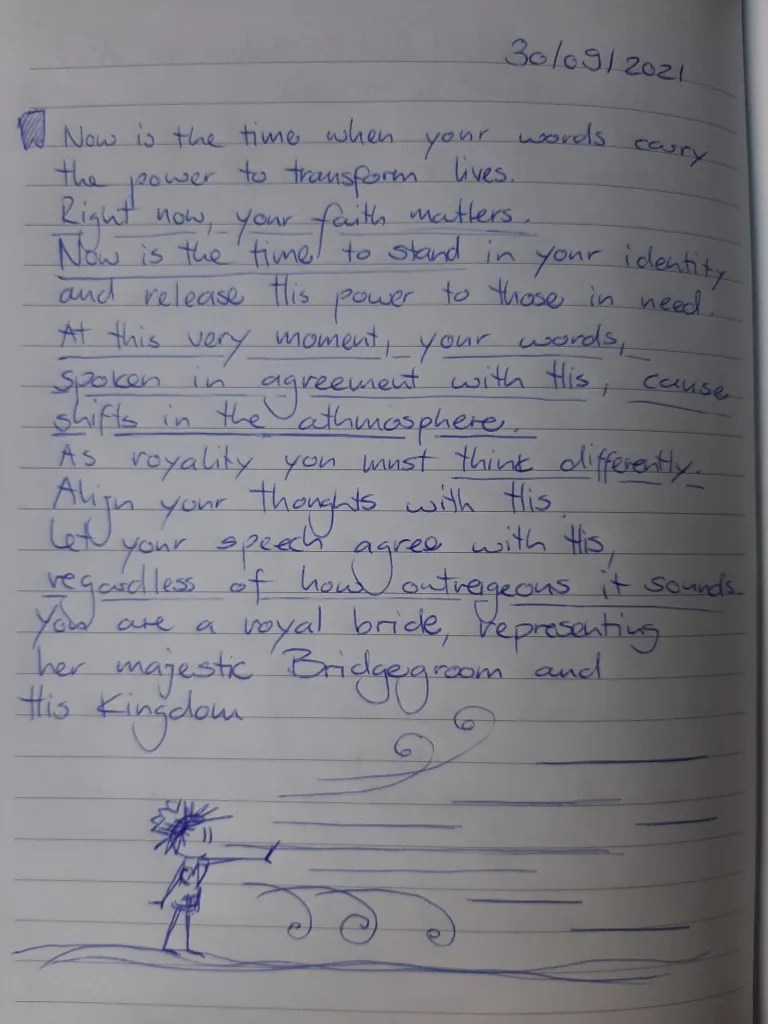 30/09/2021
Now is the time when your words carry
the power to transform lives.
Right now, your faith matters.
Now is the time to stand in your identity
and release His power to those in need.
At this very moment, your words,
spoken in agreement with His, cause
shifts in the athmosphere.
As royality you must think differently.
Align your thoughts with His.
Let your speech agree with His,
regardless of how outrageous it sounds.
You are a royal bride, representing
her majestic Bridgegroom and
His Kingdom